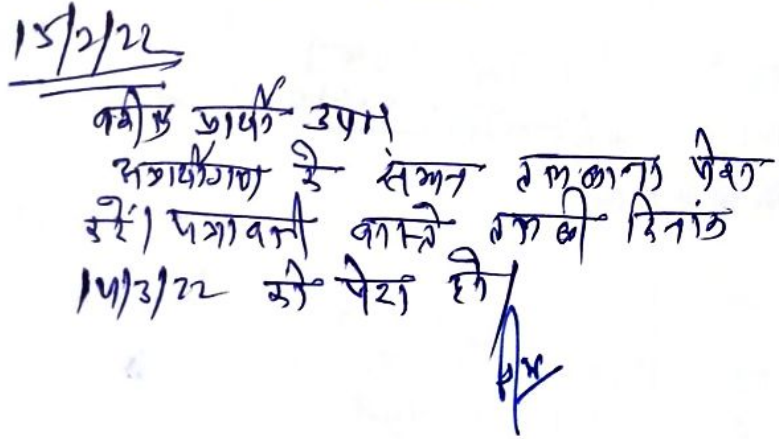 15/2/22
वकील प्रार्थी उप०।
अप्रार्थीगण के संमन तलबाना पेश
करें। पत्रावली वास्ते तलबी दिनांक
14/3/22 को पेश हो।